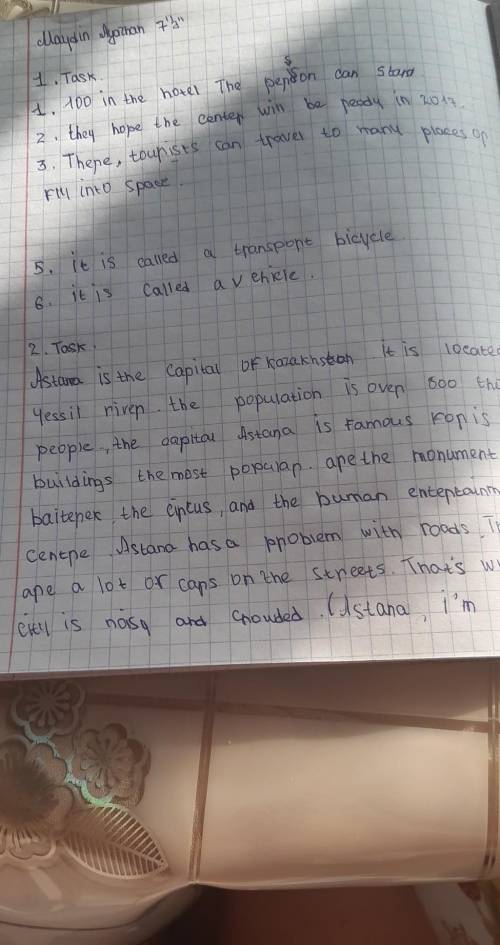 Maydin 7"з"
1. Task.
1. 100 in the hotel The person can stand
2. they hope the center win be ready in 2017.
3. There, tourists can travel to many places or
Fly into space.
5. it is called a transport bicycle
6. it is called a vehicle.
2. Task.
Astana is the capital of Kazakhstan it is located
Yessil river. the population is over 600 tho
people, the capital Astana is famous for is
buildings the most popular. are the monument
baiterek the circus, and the Duman entertainm
centre. Astana has a problem with roads. Th
are a lot of cars on the streets. That's wh
city is noisy and crouded. (Astana, i'm